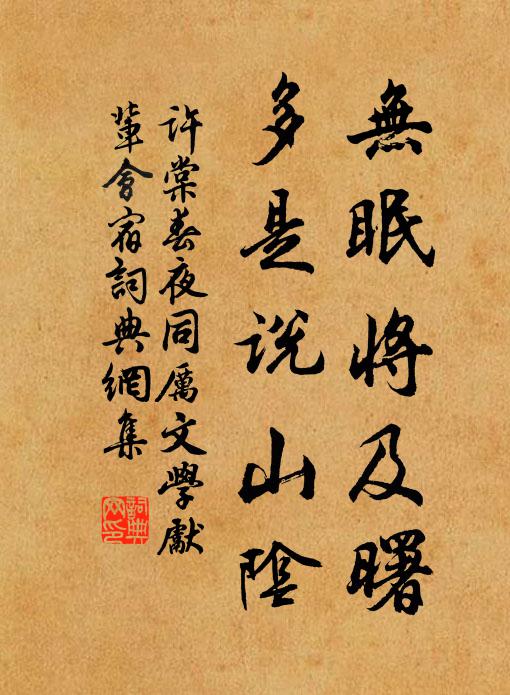 無眠將及曙
多是説山陰
許棠春夜同厲文學獻
輩會宿詞典網集
詞典
网印